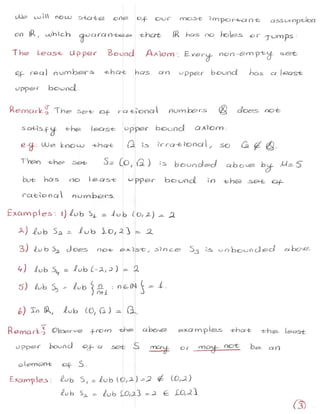 We will now state one of our most important assumption
on ℝ, which guarantees that ℝ has no holes or jumps.
The Least Upper Bound Axiom: Every non-empty set
of real numbers that has an upper bound has a least
upper bound.
Remark: The set of rational numbers ℚ does not
satisfy the least upper bound axiom:
e.g. We know that √2 is irrational, so √2 ∉ ℚ.
Then the set S = (0, √2) is bounded above by M = 5
but has no least upper bound in the set of
rational numbers.
Examples: 1) lub S₁ = lub (0, 2) = 2
2) lub S₂ = lub [0, 2] = 2
3) lub S₃ does not exist, since S₃ is unbounded above.
4) lub S₄ = lub (-2, 2) = 2
5) lub S₅ = lub { n/n+1 : n ∈ ℕ } = 1.
6) In ℝ, lub (0, √2) = √2
Remark: Observe from the above examples that the least
upper bound of a set S may or may not be an
element of S.
Examples: lub S₁ = lub (0, 2) = 2 ∉ (0, 2)
lub S₂ = lub [0, 2] = 2 ∈ [0, 2]
(3)